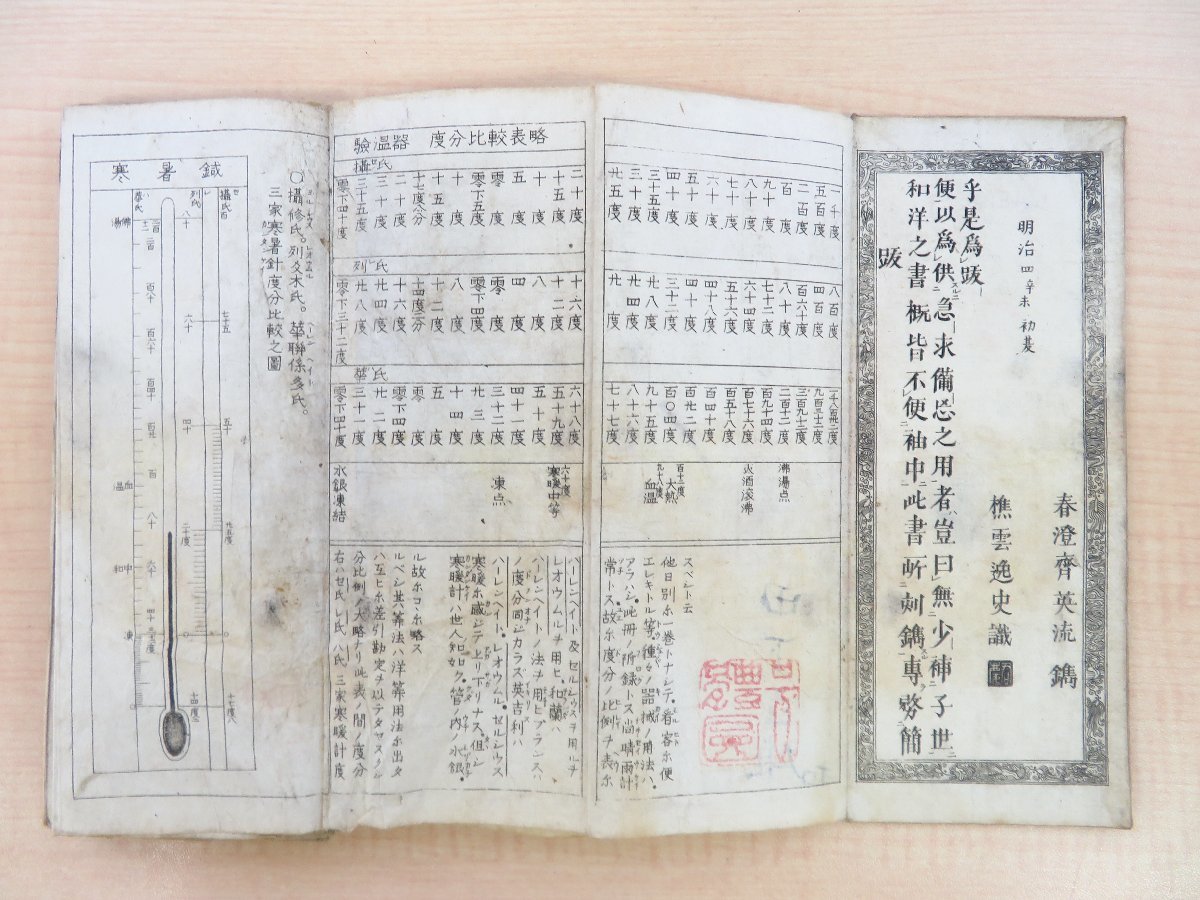 寒暑鍼
華氏
列氏
攝氏百
沸湯
血温
中和
凍
二百
百八十
百六十
百四十
百廿
百
八十
六十
四十
八十
六十
四十
二十度
○
十四度
七十五
五十
廿五度
○
十七度
三家寒暑針度分比較之圖
○攝修氏。列爻木氏。華聯係多氏。
驗溫器 度分比較表略
攝氏
零下四十度
三十五度
三十度
二十度
十七度八分
十五度
十度
零下五度
零度
五度
十度
十五度
二十度
列氏
零下三十二度
廿八度
廿四度
十六度
十四度二分
十二度
八度
零下四度
零度
四度
八度
十二度
十六度
華氏
零下四十度
三十一度
廿二度
零下四度
零度
五度
十四度
廿三度
三十二度
四十一度
五十度
五十九度
六十八度
水銀凍結
凍点
寒暖中等
六十度
右ハセ氏レ氏ハ氏三家寒暖計度
分比例ノ大略ナリ此表ノ間ノ度分
ハ互ヒニ差引勘定ヲ以テタセスノル
ルベシ其筭法ハ洋筭用法ニ出タ
ル故ニコヽニ略ス
寒暖計ハ世人知ル如ク。管ノ内ノ水銀。
寒暖ニ感ジテ上リ下リナス。但シ
ハーレンヘイト。レオウムル。セルシウス
ノ度分同ジカラズ英吉利ハ
ハーレンヘイトノ法ヲ用ヒフランスハ
レオウムルヲ用ヒ。和蘭ハ
ハーレンヘイト及セルシウスヲ用ルナリ
廿五度
三十度
三十五度
四十度
五十度
六十度
七十度
八十度
九十度
百度
二百度
五百度
一千度
廿度
廿四度
廿八度
三十二度
四十度
四十八度
五十六度
六十四度
七十二度
八十度
百六十度
四百度
八百度
七十七度
八十六度
九十五度
百〇四度
百廿二度
百四十度
百五十八度
百七十六度
百九十四度
二百十二度
三百九十二度
九百三十二度
一千八百卅二度
九十八度
血温
大熱
百十二度
火酒滚沸
沸湯点
常トス故ニ度分ノ比例ヲ表ニ
アラハシ。此冊ニ附録トス尚晴雨計
エレキトル等種々ノ器械ノ用法ハ。
他日別ニ一巻トナシテ。看客ニ便
スベシト云
跋
和洋之書概皆不便袖中此書所刻鐫專努簡
便以為供急求備忘之用者豈曰無少補于世
乎是為跋
明治四辛未初夏
樵雲逸史識
春澄齊英流 鐫